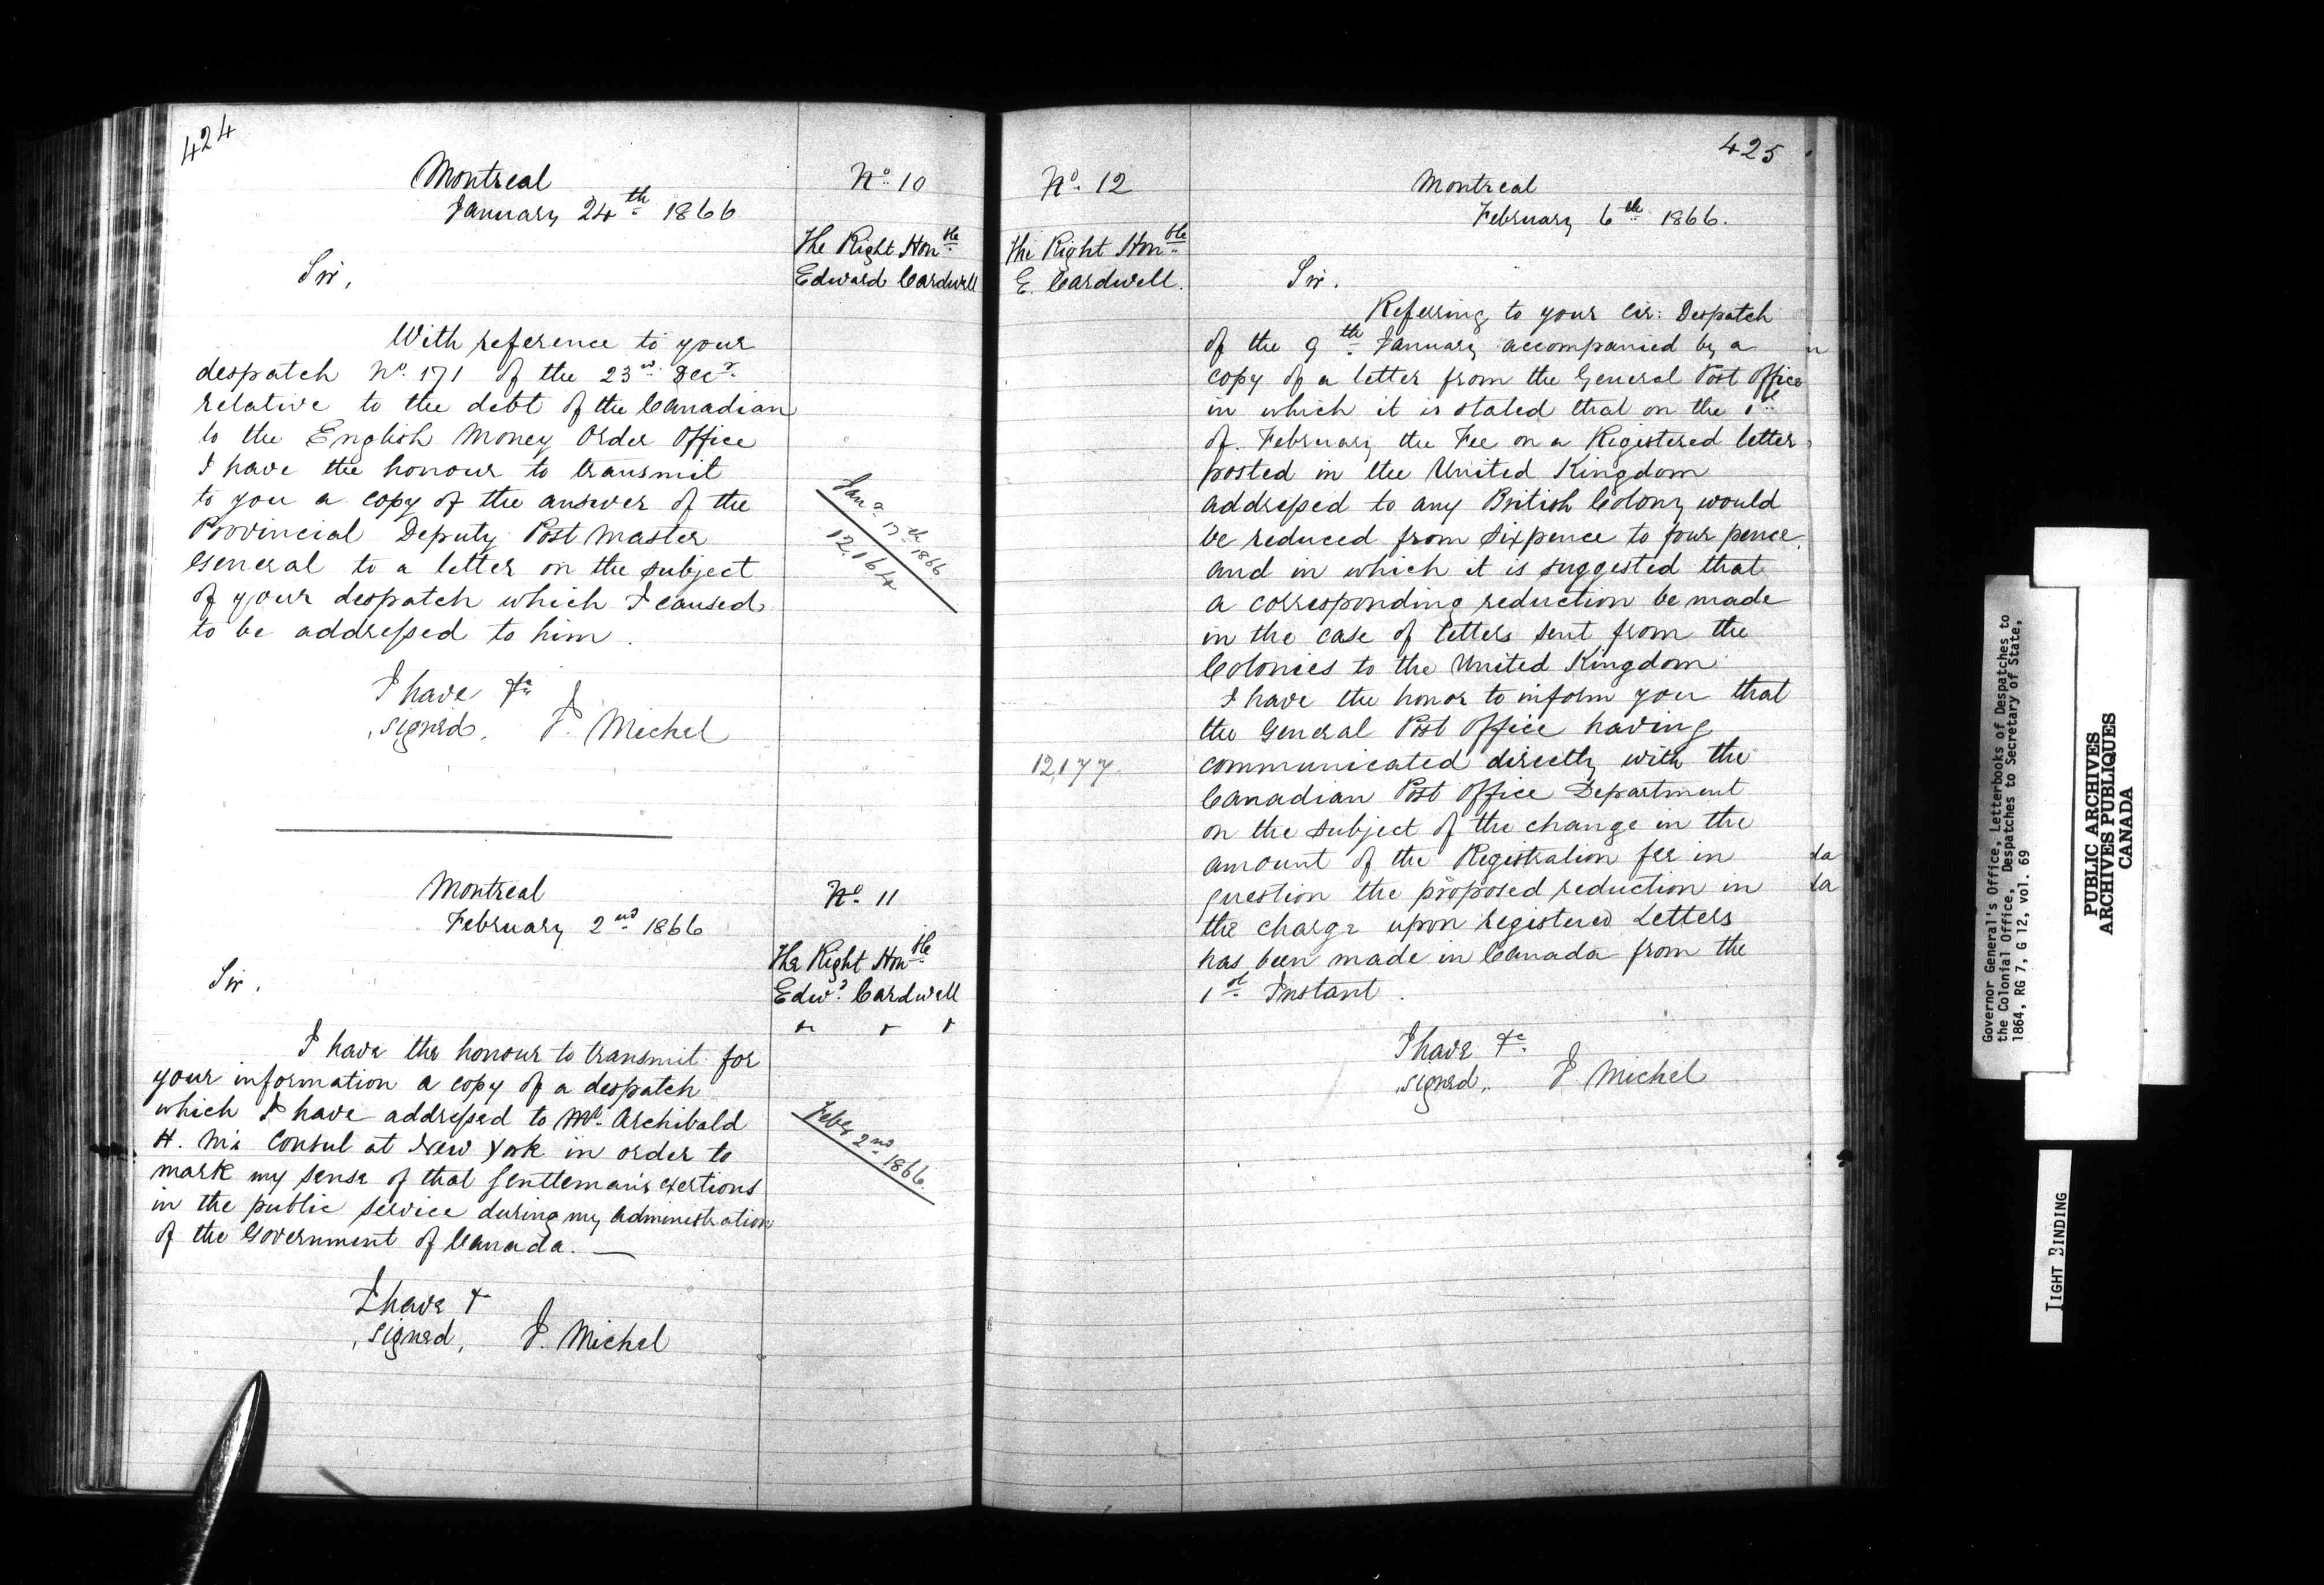 424
Montreal
January 24th 1866
No. 10
The Right Honble
Edward Cardwell
Sir,
With reference to your
despatch No. 171 of the 23rd Decr.
relative to the debt of the Canadian
to the English Money Order Office
I have the honour to transmit
to you a copy of the answer of the
Provincial Deputy Post Master
General to a letter on the subject
of your despatch which I caused
to be addressed to him.
Jany 17th 1866
12,164
I have &c
signed, J. Michel
Montreal
February 2nd 1866
No. 11
The Right Honble
Edwd. Cardwell
Sir.
I have the honour to transmit for
your information a copy of a despatch
which I have addressed to Mr. Archibald
H. M's Consul at New York in order to
mark my sense of that Gentleman's exertions
in the public service during my Administration
of the Government of Canada. —
Feby 2nd 1866.
I have &
signed, J. Michel
425
No. 12
The Right Honble
E. Cardwell.
Montreal
February 6th 1866.
Sir.
Referring to your Cir: Despatch
of the 9th January accompanied by a
copy of a letter from the General Post Office
in which it is stated that on the 1st
of February the Fee on a Registered letter
posted in the United Kingdom
addressed to any British Colony would
be reduced from sixpence to four pence
and in which it is suggested that
a corresponding reduction be made
in the case of letters sent from the
Colonies to the United Kingdom
I have the honor to inform you that
the General Post Office having
12,177.
communicated directly with the
Canadian Post Office Department
on the subject of the change in the
amount of the Registration fee in
question the proposed reduction in
the charge upon registered Letters
has been made in Canada from the
1st Instant.
I have &c.
signed, J. Michel
da
da
Governor General's Office, Letterbooks of Despatches to
the Colonial Office, Despatches to Secretary of State,
1864, RG 7, G 12, vol. 69
PUBLIC ARCHIVES
ARCHIVES PUBLIQUES
CANADA
TIGHT BINDING